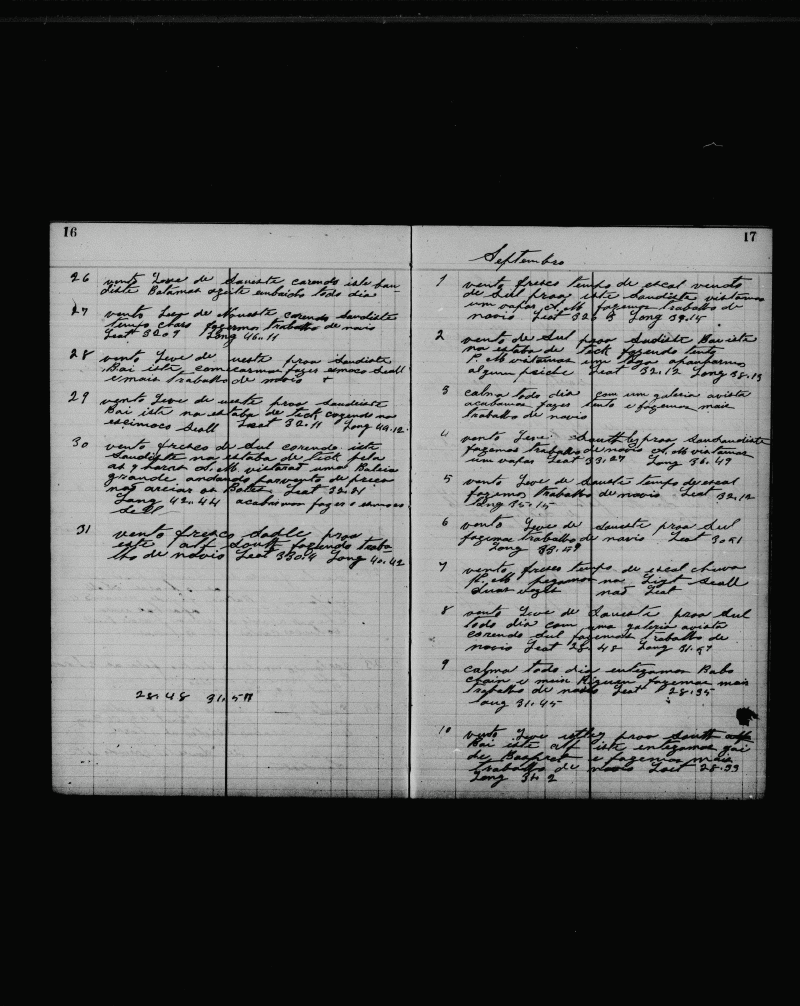 16
26 vento Leve de Saueste corendo iste bau-
diste Batamos azeite embaicho todo dia
27 vento Leve de Noueste corendo saudiste
tempo claro fazemos trabalho de navio
Leat 32.9 Long 46.11
28 vento Leve de ueste proa Saudiste
Bai iste comecarmos fazer esmoco Seall
e mais trabalho de navio +
29 vento Leve de ueste proa saudiste
Bai iste na estaba de teck cozendo no
escimoco Seall Leat 32.11 Long 44.12
30 vento fresco de Sul corendo iste
Saudiste na estaba de teck pela
as 9 horas A.M. vistaras uma Baleia
grande andando porvento de
nas arciar os Botes Leat 33.21
Long 42.44 acabamos fazer esmoco
Seall
31 vento fresco proa
este alf South fazendo traba
lho de navio Leat 33.0.4 Long 40.42
28.48 31.57
17
Septembro
1 vento fresco tempo de escal vendo
de Sul proa iste Saudiste vistamos
um vapor A.M. fazemos trabalho de
navio Leat 32.8 Long 39.15
2 vento de Sul proa Saudiste Bai iste
na estaba de teck fazendo
P.M vistamos um apanharmos
algum peiche Leat 32.12 Long 38.13
3 calma todo dia com um galeria avista
acabamos fazer e fazemos mais
trabalho de navio
4 vento Leve South by proa Sausaudiste
fazemos trabalho de navio A.M vistamos
um vapor Leat 33.27 Long 36.49
5 vento Leve de Saueste tempo de escal
fazemos trabalho de navio Leat 32.12
Long 35.15
6 vento Leve de Saueste proa Sul
fazemos trabalho de navio Leat 30.51
Long 33.29
7 vento fresco tempo de escal chuva
P.M pegamos na Seall
duas nas Leat
8 vento Leve de Saueste proa Sul
todo dia com uma galeria avista
corendo Sul fazemos trabalho de
navio Leat 28.48 Long 31.57
9 calma todo dia entegamos Babo
chain e main fazemos mais
trabalho de navio Leat 28.35
Long 31.45
10 vento Leve proa South
Bai iste alf iste entegamos gai
de e fazemos mais
trabalho de navio Leat 28.33
Long 31.2